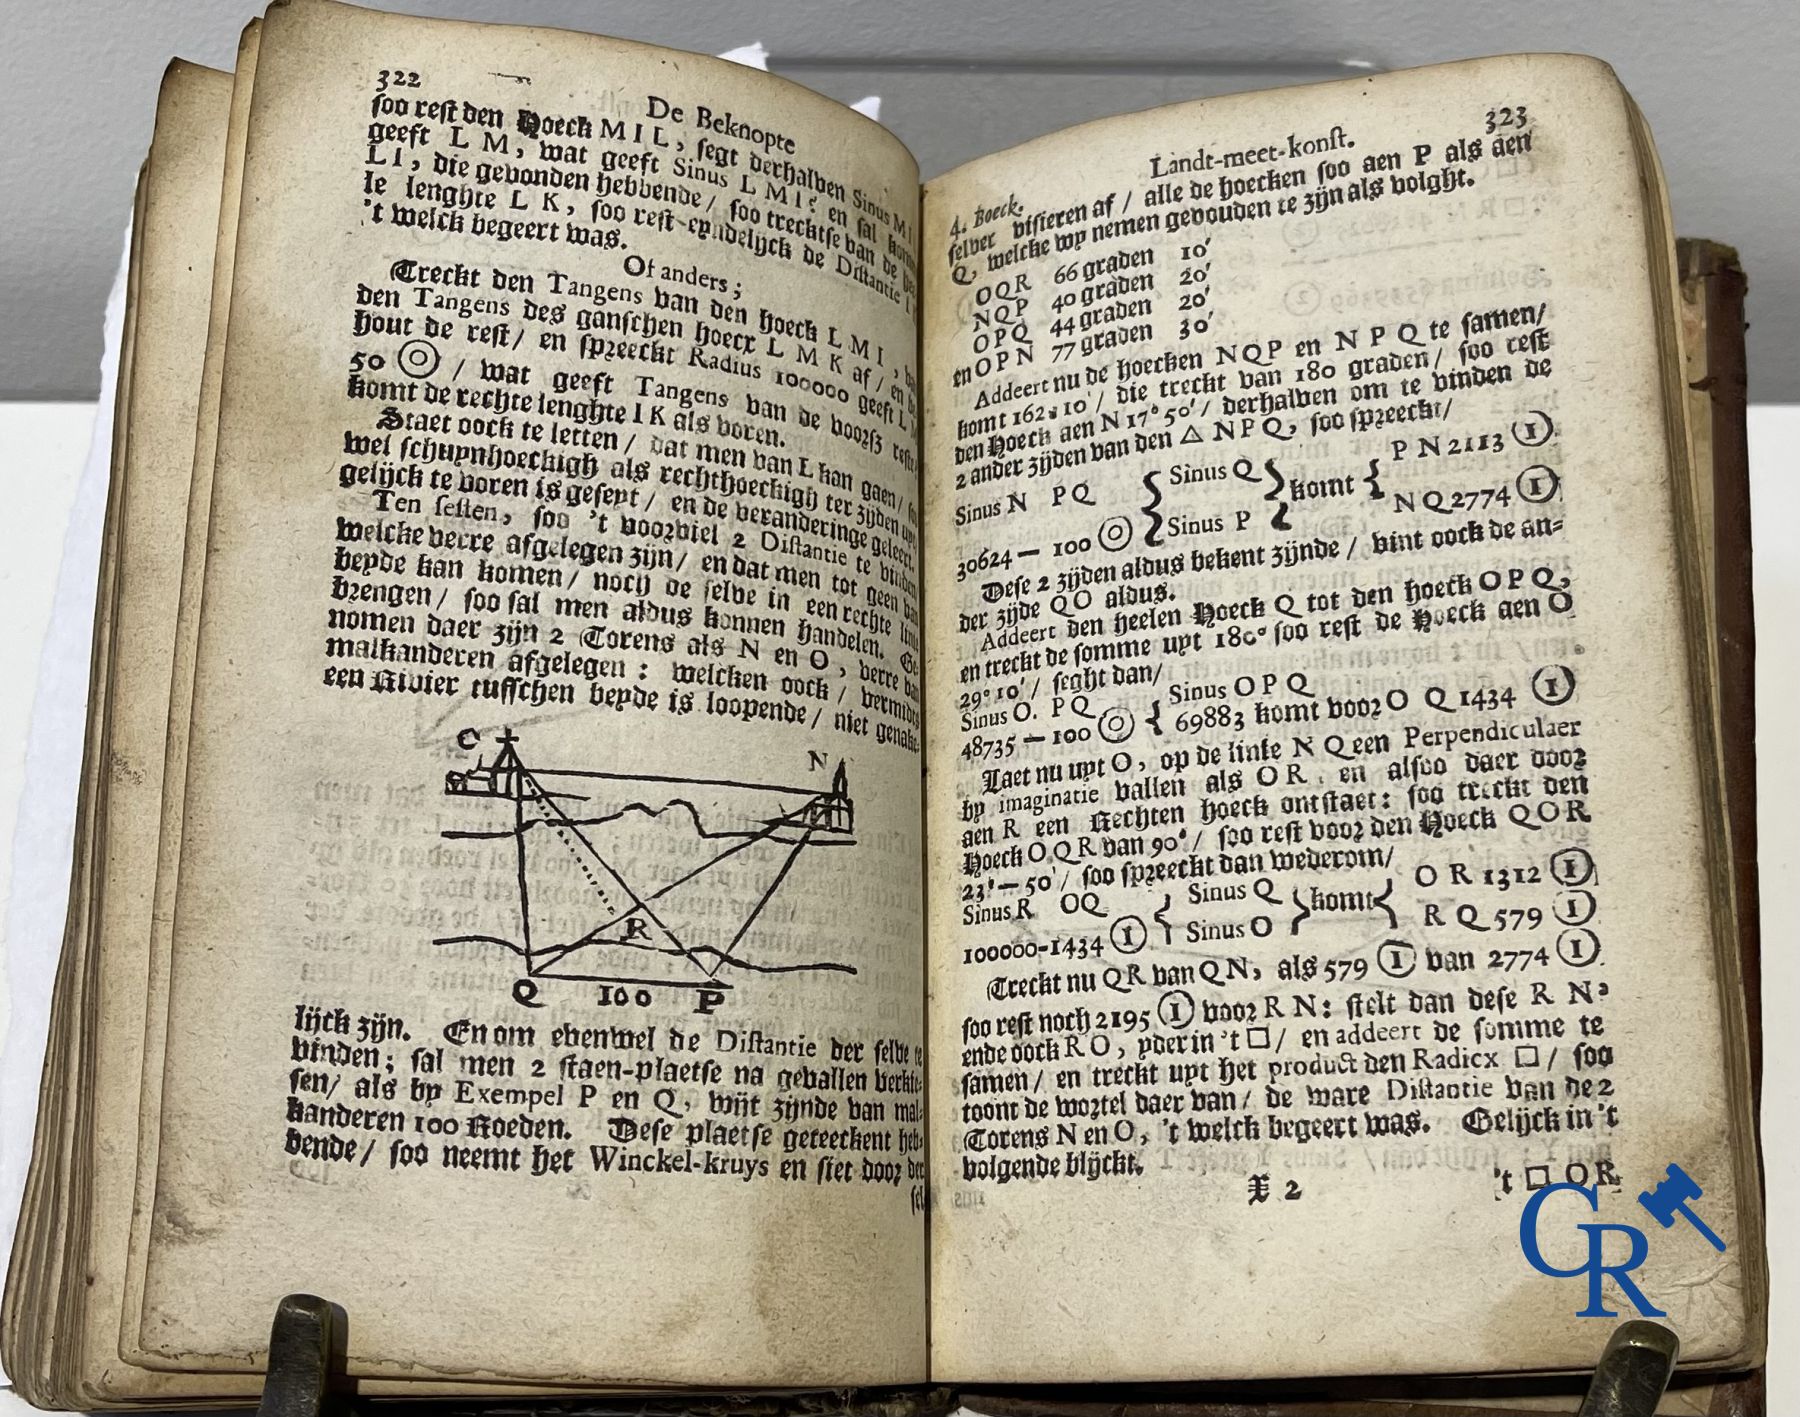 322
De Beknopte
soo rest den Hoeck M I L, segt derhalven Sinus M I
geeft L M, wat geeft Sinus L M I? en sal komen
L I, die gevonden hebbende / soo trecktse van de
le lenghte L K, soo rest eyndelijck de Distantie I
't welck begeert was.
Of anders;
Treckt den Tangens van den hoeck L M I,
den Tangens des ganschen hoecx L M K af / en
hout de rest / en spreeckt Radius 100000 geeft L M
50 ⊚ / wat geeft Tangens van de voorsz reste
komt de rechte lenghte I K als voren.
Staet oock te letten / dat men van L kan gaen /
wel schuynhoeckigh als rechthoeckigh ter zijden
gelijck te voren is geseyt / en de veranderinge geleert.
Ten sesten, soo 't voorviel 2 Distantie te vinden
welcke verre afgelegen zijn / en dat men tot geen van
beyde kan komen / noch de selve in een rechte linie
brengen / soo sal men aldus konnen handelen. Ge-
nomen daer zijn 2 Torens als N en O, verre van
malkanderen afgelegen: welcken oock / vermidts
een Rivier tusschen beyde is loopende / niet genake-
O
N
R
Q 100 P
lijck zijn. En om evenwel de Distantie der selve te
vinden; sal men 2 staen-plaetse na gevallen verkie-
sen / als by Exempel P en Q, wijt zijnde van mal-
kanderen 100 Roeden. Dese plaetse geteeckent heb-
bende / soo neemt het Winckel-kruys en siet door der
sel
4. Boeck. Landt-meet-konst. 323
selver visieren af / alle de hoecken soo aen P als aen
Q, welcke wy nemen gevouden te zijn als volght.
OQR 66 graden 10'
NQP 40 graden 20'
OPQ 44 graden 20'
en OPN 77 graden 30'
Addeert nu de hoecken N Q P en N P Q te samen /
komt 162° 10' / die treckt van 180 graden / soo rest
den Hoeck aen N 17° 50' / derhalven om te vinden de
2 ander zijden van den △ N P Q, soo spreeckt /
P N 2113 ①
Sinus N P Q { Sinus Q } komt {
30624 — 100 ⊚ { Sinus P } N Q 2774 ①
Dese 2 zijden aldus bekent zijnde / vint oock de an-
der zijde Q O aldus.
Addeert den heelen Hoeck Q tot den hoeck O P Q,
en treckt de somme uyt 180° soo rest de Hoeck aen O
29° 10' / seght dan /
Sinus O. P Q { Sinus O P Q
48735 — 100 ⊚ { 69883 komt voor O Q 1434 ①
Laet nu uyt O, op de linie N Q een Perpendiculaer
by imaginatie vallen als O R, en alsoo daer door
aen R een Rechten hoeck ontstaet: soo treckt den
Hoeck O Q R van 90° / soo rest voor den Hoeck Q O R
23° — 50' / soo spreeckt dan wederom /
Sinus R OQ { Sinus Q } komt { O R 1312 ①
100000-1434 ① { Sinus O } R Q 579 ①
Treckt nu Q R van Q N, als 579 ① van 2774 ①
soo rest noch 2195 ① voor R N: stelt dan dese R N,
ende oock R O, yder in 't □ / en addeert de somme te
samen / en treckt uyt het product den Radicx □ / soo
toont de wortel daer van / de ware Distantie van de 2
Torens N en O, 't welck begeert was. Gelijck in 't
volgende blijckt.
X 2 't □ O R
CR